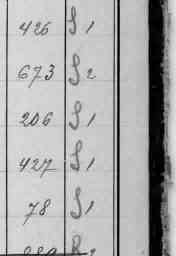 426 S1
673 S2
206 S1
427 S1
78 S1